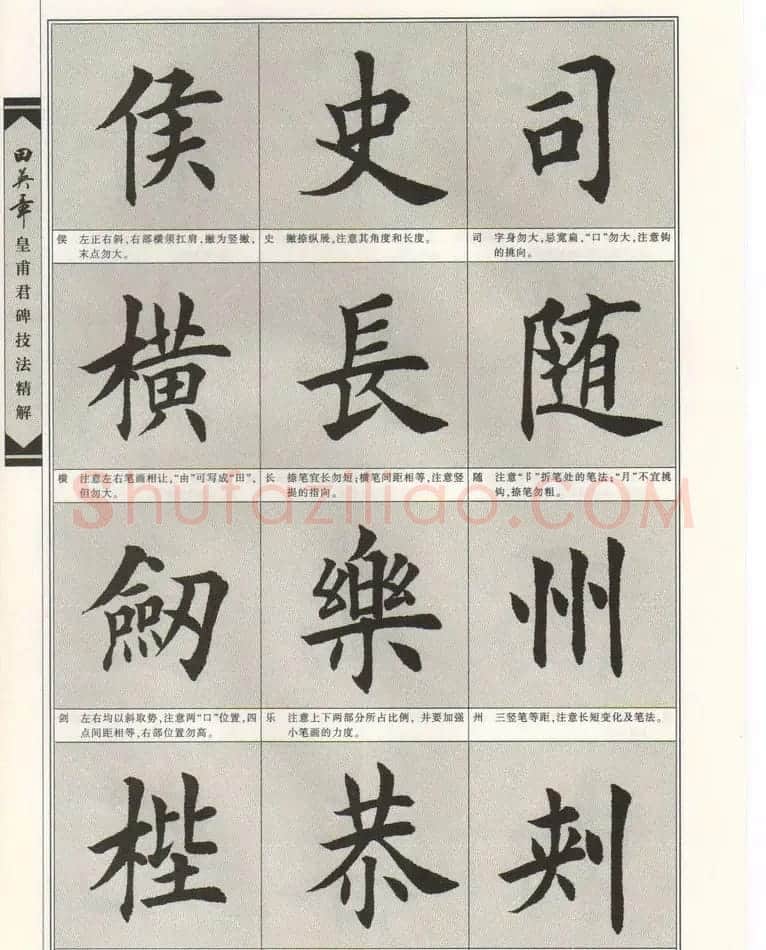 田英章皇甫君碑技法精解
侯
史
司
侯 左正右斜,右部横须扛肩,撇为竖撇,
末点勿大。
史 撇捺纵展,注意其角度和长度。
司 字身勿大,忌宽扁,“口”勿大,注意钩
的挑向。
横
長
随
横 注意左右笔画相让,“由”可写成“田”,
但勿大。
长 捺笔宜长勿短;横笔间距相等,注意竖
提的指向。
随 注意“阝”折笔处的笔法;“月”不宜挑
钩,捺笔勿粗。
Shufaziliao.COM
劒
樂
州
剑 左右均以斜取势,注意两“口”位置,四
点间距相等,右部位置勿高。
乐 注意上下两部分所占比例,并要加强
小笔画的力度。
州 三竖笔等距,注意长短变化及笔法。
梐
恭
刾